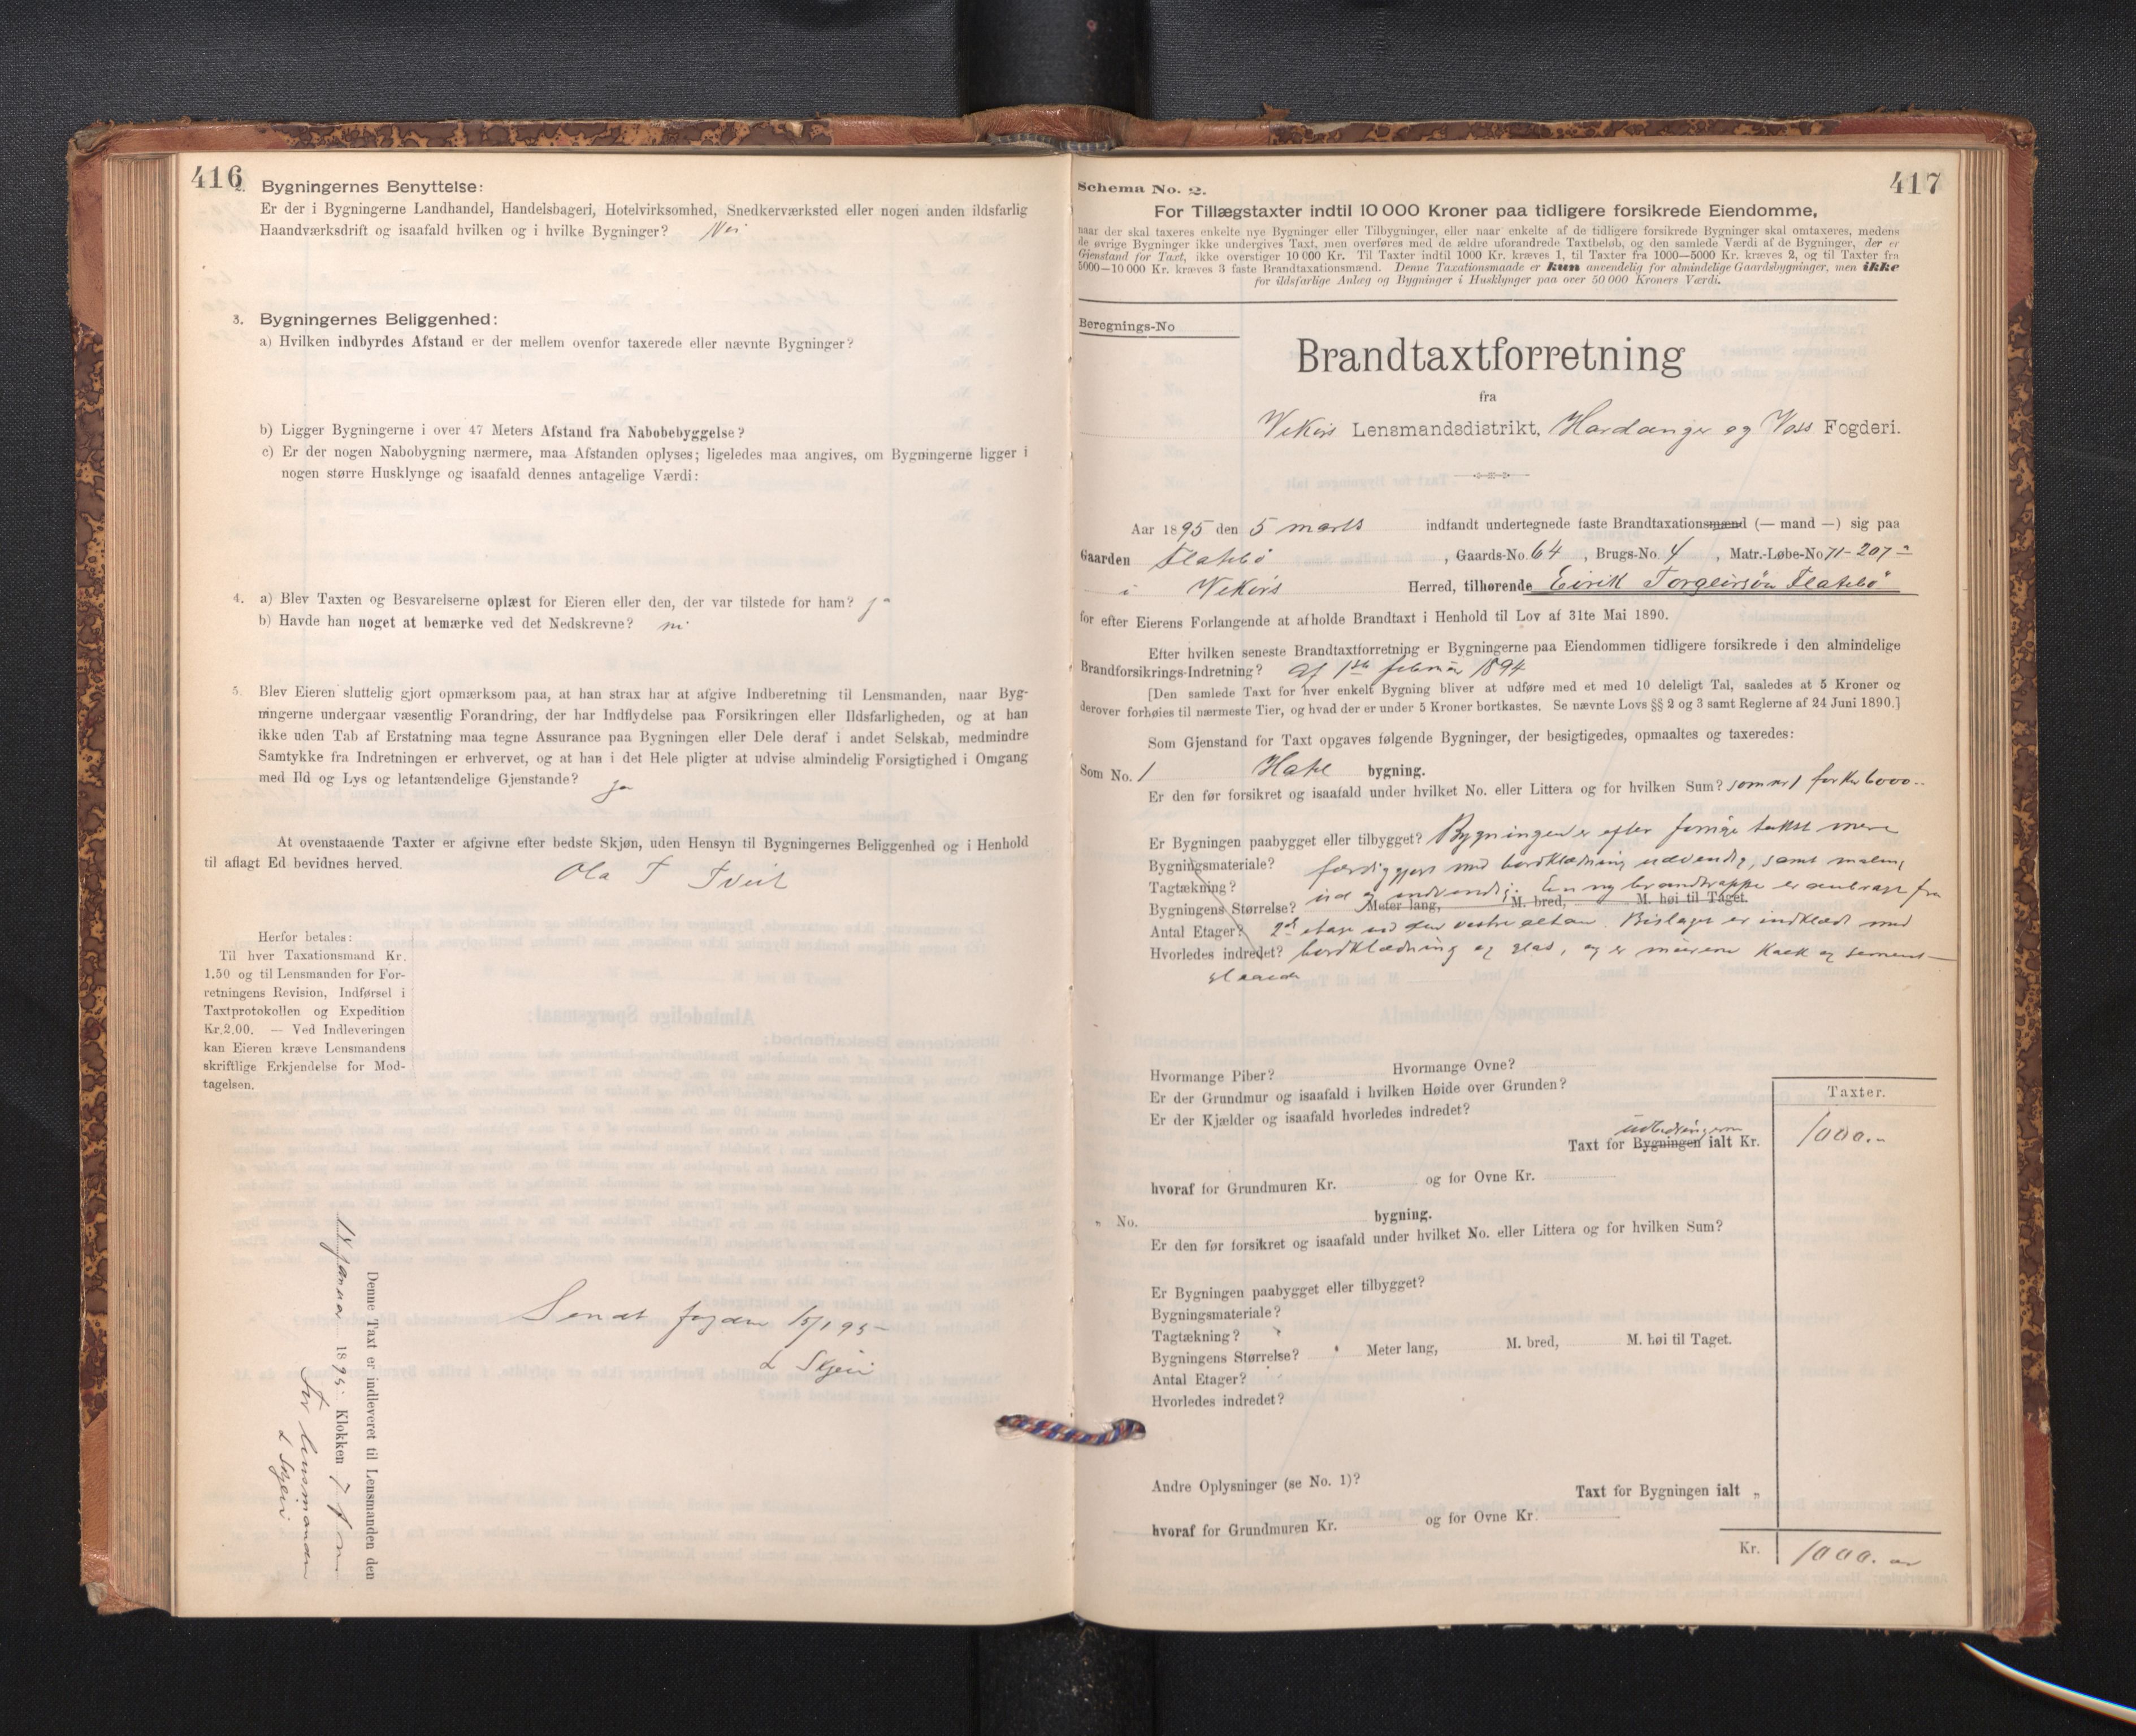 416
2. Bygningernes Benyttelse:
Er der i Bygningerne Landhandel, Handelsbageri, Hotelvirksomhed, Snedkerværksted eller nogen anden ildsfarlig
Haandværksdrift og isaafald hvilken og i hvilke Bygninger? Nei
3. Bygningernes Beliggenhed:
a) Hvilken indbyrdes Afstand er der mellem ovenfor taxerede eller nævnte Bygninger?
b) Ligger Bygningerne i over 47 Meters Afstand fra Nabobebyggelse?
c) Er der nogen Nabobygning nærmere, maa Afstanden oplyses; ligeledes maa angives, om Bygningerne ligger i
nogen større Husklynge og isaafald dennes antagelige Værdi:
4. a) Blev Taxten og Besvarelserne oplæst for Eieren eller den, der var tilstede for ham? ja
b) Havde han noget at bemærke ved det Nedskrevne? nei
5. Blev Eieren sluttelig gjort opmærksom paa, at han strax har at afgive Indberetning til Lensmanden, naar Byg-
ningerne undergaar væsentlig Forandring, der har Indflydelse paa Forsikringen eller Ildsfarligheden, og at han
ikke uden Tab af Erstatning maa tegne Assurance paa Bygningen eller Dele deraf i andet Selskab, medmindre
Samtykke fra Indretningen er erhvervet, og at han i det Hele pligter at udvise almindelig Forsigtighed i Omgang
med Ild og Lys og letantændelige Gjenstande? ja
At ovenstaaende Taxter er afgivne efter bedste Skjøn, uden Hensyn til Bygningernes Beliggenhed og i Henhold
til aflagt Ed bevidnes herved.
Ola T Tveit
Herfor betales:
Til hver Taxationsmand Kr.
1.50 og til Lensmanden for For-
retningens Revision, Indførsel i
Taxtprotokollen og Expedition
Kr. 2.00. — Ved Indleveringen
kan Eieren kræve Lensmandens
skriftlige Erkjendelse for Mod-
tagelsen.
Sendt fogden 15/1 95
L Skjeie
Denne Taxt er indleveret til Lensmanden den
januar 1895 Klokken 7
For lensmanden
L Skjeie
417
Schema No. 2.
For Tillægstaxter indtil 10 000 Kroner paa tidligere forsikrede Eiendomme,
naar der skal taxeres enkelte nye Bygninger eller Tilbygninger, eller naar enkelte af de tidligere forsikrede Bygninger skal omtaxeres, medens
de øvrige Bygninger ikke undergives Taxt, men overføres med de ældre uforandrede Taxtbeløb, og den samlede Værdi af de Bygninger, der er
Gjenstand for Taxt, ikke overstiger 10 000 Kr. Til Taxter indtil 1000 Kr. kræves 1, til Taxter fra 1000—5000 Kr. kræves 2, og til Taxter fra
5000—10 000 Kr. kræves 3 faste Brandtaxationsmænd. Denne Taxationsmaade er kun anvendelig for almindelige Gaardsbygninger, men ikke
for ildsfarlige Anlæg og Bygninger i Husklynger paa over 50 000 Kroners Værdi.
Beregnings-No
Brandtaxtforretning
fra
Vekørs Lensmandsdistrikt, Hardanger og Voss Fogderi.
Aar 1895 den 5 marts indfandt undertegnede faste Brandtaxationsmænd (— mand —) sig paa
Gaarden Flatebø, Gaards-No. 64, Brugs-No. 4, Matr.-Løbe-No 71-207
i Vekørs Herred, tilhørende Eirik Torgeirsøn Flatebø
for efter Eierens Forlangende at afholde Brandtaxt i Henhold til Lov af 31te Mai 1890.
Efter hvilken seneste Brandtaxtforretning er Bygningerne paa Eiendommen tidligere forsikrede i den almindelige
Brandforsikrings-Indretning? af 1ste februar 1894
[Den samlede Taxt for hver enkelt Bygning bliver at udføre med et med 10 deleligt Tal, saaledes at 5 Kroner og
derover forhøies til nærmeste Tier, og hvad der er under 5 Kroner bortkastes. Se nævnte Lovs §§ 2 og 3 samt Reglerne af 24 Juni 1890.]
Som Gjenstand for Taxt opgaves følgende Bygninger, der besigtigedes, opmaaltes og taxeredes:
Som No. 1 Hotel bygning.
Er den før forsikret og isaafald under hvilket No. eller Littera og for hvilken Sum? som nr 1 for Kr 6000..
Er Bygningen paabygget eller tilbygget? Bygningen er efter forrige takst mere
Bygningsmateriale? færdiggjort med bordklædning udvendig, samt maling
Tagtækning? ud og indvendig. En ny brandtrappe er anbragt fra
Bygningens Størrelse? Meter lang, M. bred, M. høi til Taget.
Antal Etager? 2de etage ved den vestre altan. Bislaget er indklædt med
Hvorledes indredet? bordklædning og glas, og er murene kalk og sement
slaaede
Hvormange Piber? Hvormange Ovne?
Er der Grundmur og isaafald i hvilken Høide over Grunden?
Er der Kjælder og isaafald hvorledes indredet?
Taxter.
udbedringerne
Taxt for Bygningen ialt Kr. 1000.-
hvoraf for Grundmuren Kr. og for Ovne Kr.
" No. bygning.
Er den før forsikret og isaafald under hvilket No. eller Littera og for hvilken Sum?
Er Bygningen paabygget eller tilbygget?
Bygningsmateriale?
Tagtækning?
Bygningens Størrelse? Meter lang, M. bred, M. høi til Taget.
Antal Etager?
Hvorledes indredet?
Andre Oplysninger (se No. 1)?
Taxt for Bygningen ialt "
hvoraf for Grundmuren Kr. og for Ovne Kr.
Kr. 1000.